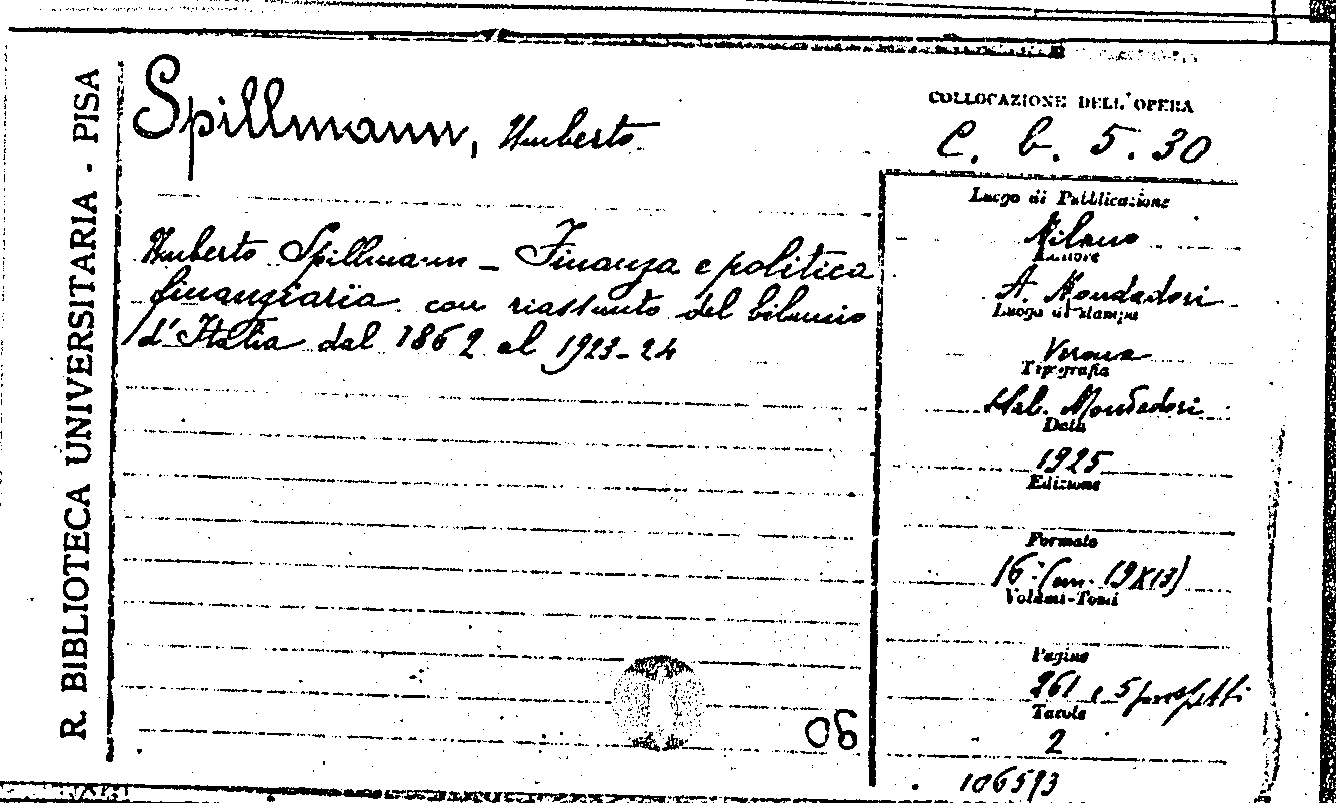 R. BIBLIOTECA UNIVERSITARIA - PISA
Spillmann, Umberto
COLLOCAZIONE DELL'OPERA
C. b. 5. 30
Umberto Spillmann - Finanza e politica
finanziaria con riassunto del bilancio
d'Italia dal 1862 al 1923-24
Luogo di Pubblicazione
Milano
A. Mondadori
Luogo di stampa
Verona
Tipografia
Stab. Mondadori
Data
1925
Edizione
Formato
16° (cm. 19X13)
Volumi-Tomi
Pagine
261 e 5 prospetti
Tavole
2
06